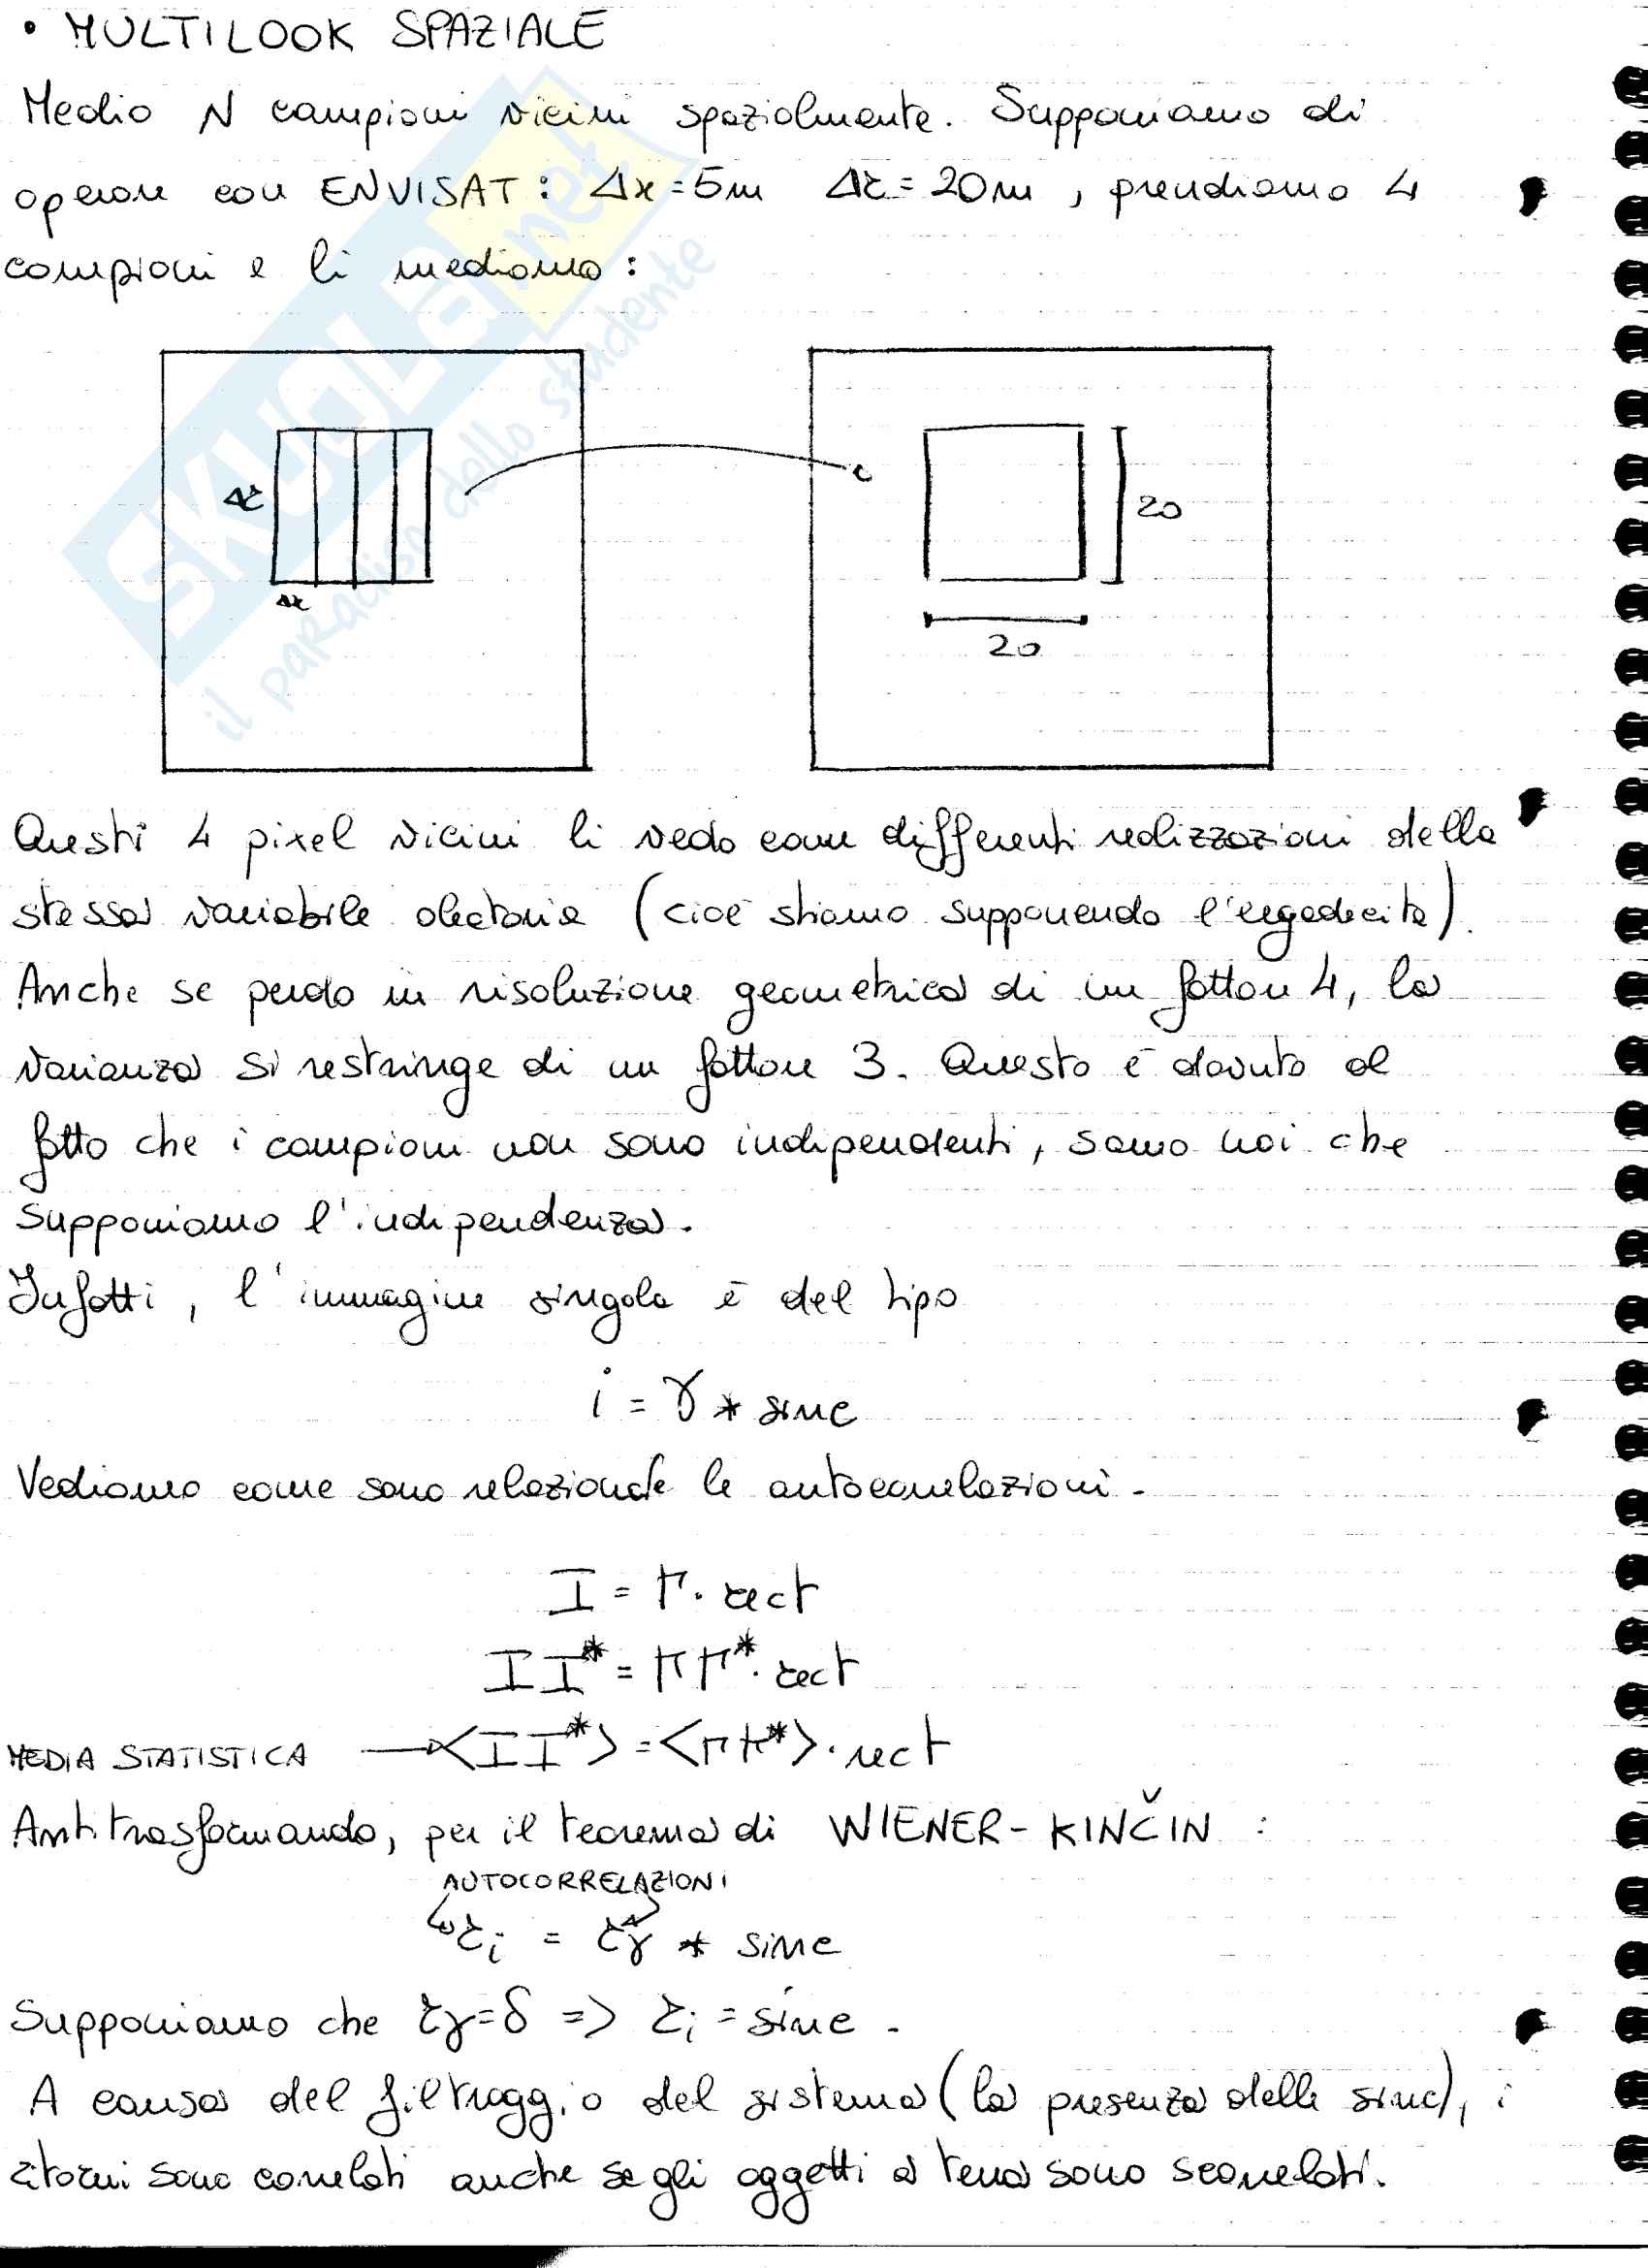 • MULTILOOK SPAZIALE
Medio N campioni vicini spazialmente. Supponiamo di
operare con ENVISAT: Δx=5m Δr=20m, prendiamo 4
campioni e li mediamo:
Δr
Δx
20
20
Questi 4 pixel vicini li vedo come differenti realizzazioni della
stessa variabile aleatoria (cioè stiamo supponendo l'ergodicità).
Anche se perdo in risoluzione geometrica di un fattore 4, la
varianza si restringe di un fattore 3. Questo è dovuto al
fatto che i campioni non sono indipendenti, siamo noi che
supponiamo l'indipendenza.
Infatti, l'immagine singola è del tipo
i = γ * sinc
Vediamo come sono relazionate le autocorrelazioni.
I = Γ · rect
II* = ΓΓ* · rect
MEDIA STATISTICA → <II*> = <ΓΓ*> · rect
Antitrasformando, per il teorema di WIENER-KINČIN :
AUTOCORRELAZIONI
r_i = r_γ * sinc
Supponiamo che r_γ = δ => r_i = sinc.
A causa del filtraggio del sistema (la presenza delle sinc), i
ritorni sono correlati anche se gli oggetti a terra sono scorrelati.
SKUOLA.net
il paradiso dello studente